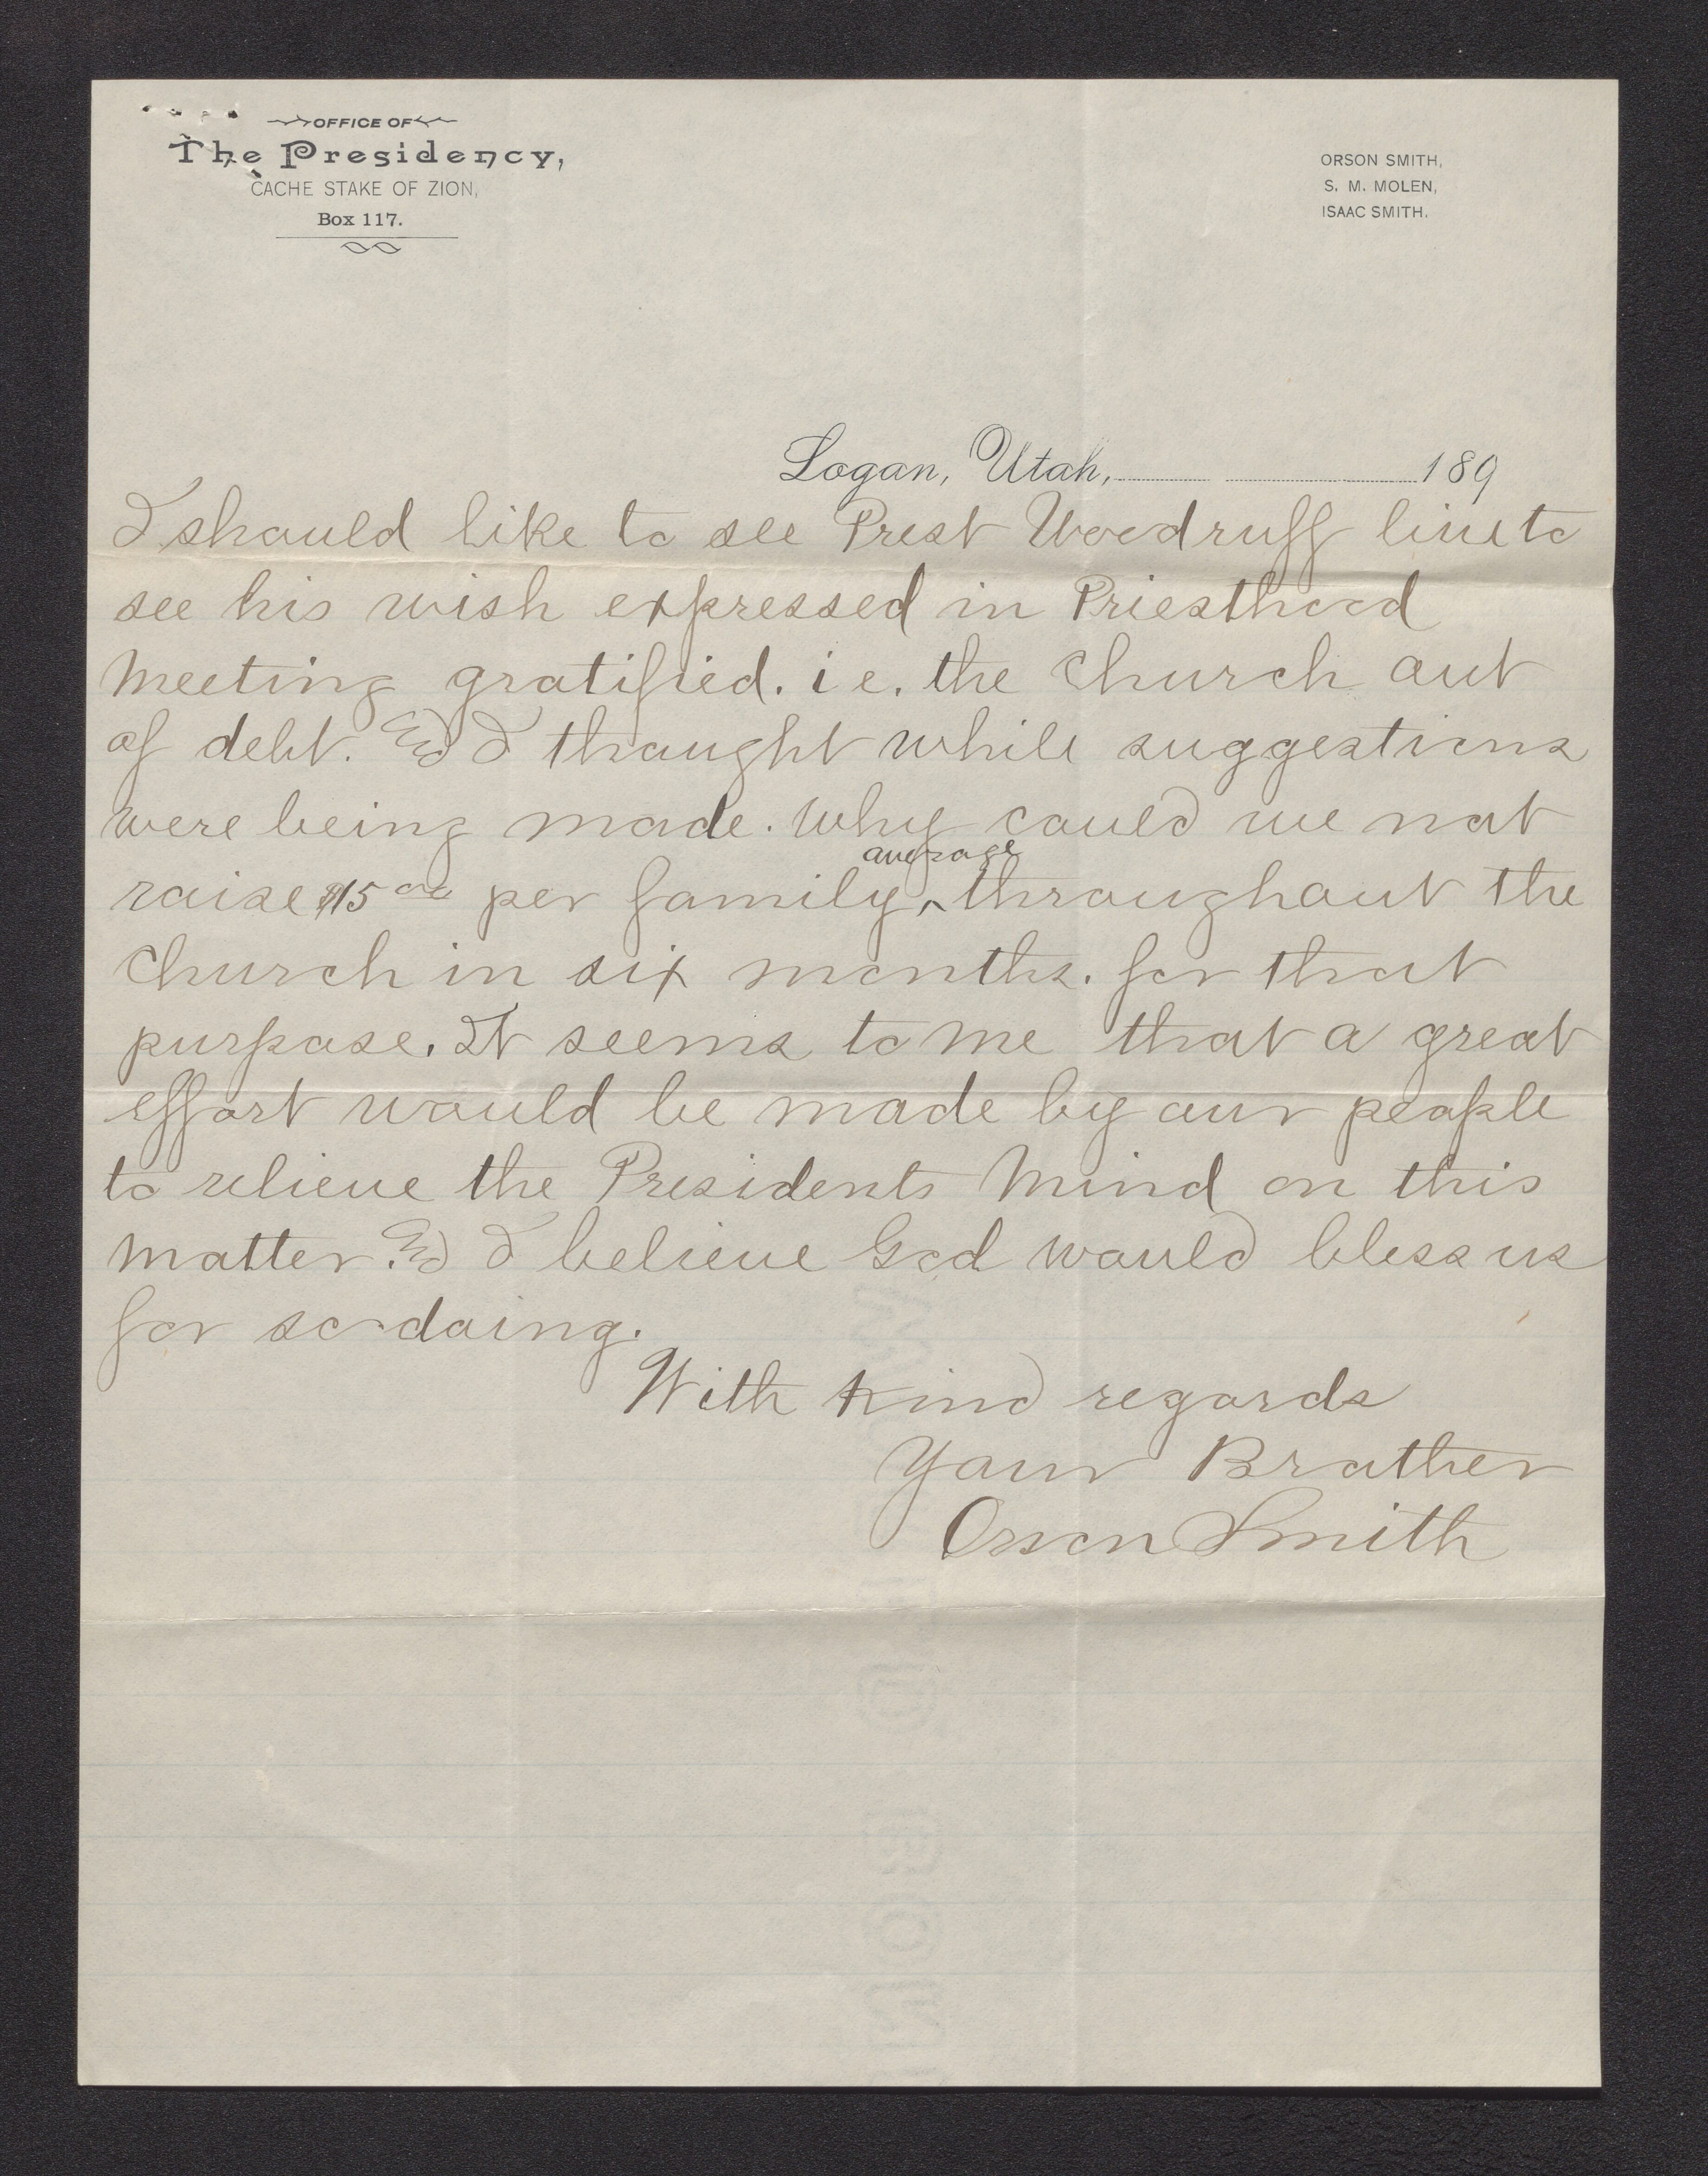 OFFICE OF
The Presidency,
CACHE STAKE OF ZION,
Box 117.
ORSON SMITH,
S. M. MOLEN,
ISAAC SMITH.
Logan, Utah, 189
I should like to see Prest Woodruff live to
see his wish expressed in Priesthood
Meeting gratified. i e. the Church out
of debt. And I thought while suggestions
were being made. Why could we not
average
raise $15 00 per family,^ throughout the
Church in six months. for that
purpose. It seems to me that a great
effort would be made by our people
to relieve the Presidents Mind on this
matter. And I believe God would bless us
for so doing.
With kind regards
Your Brother
Orson Smith